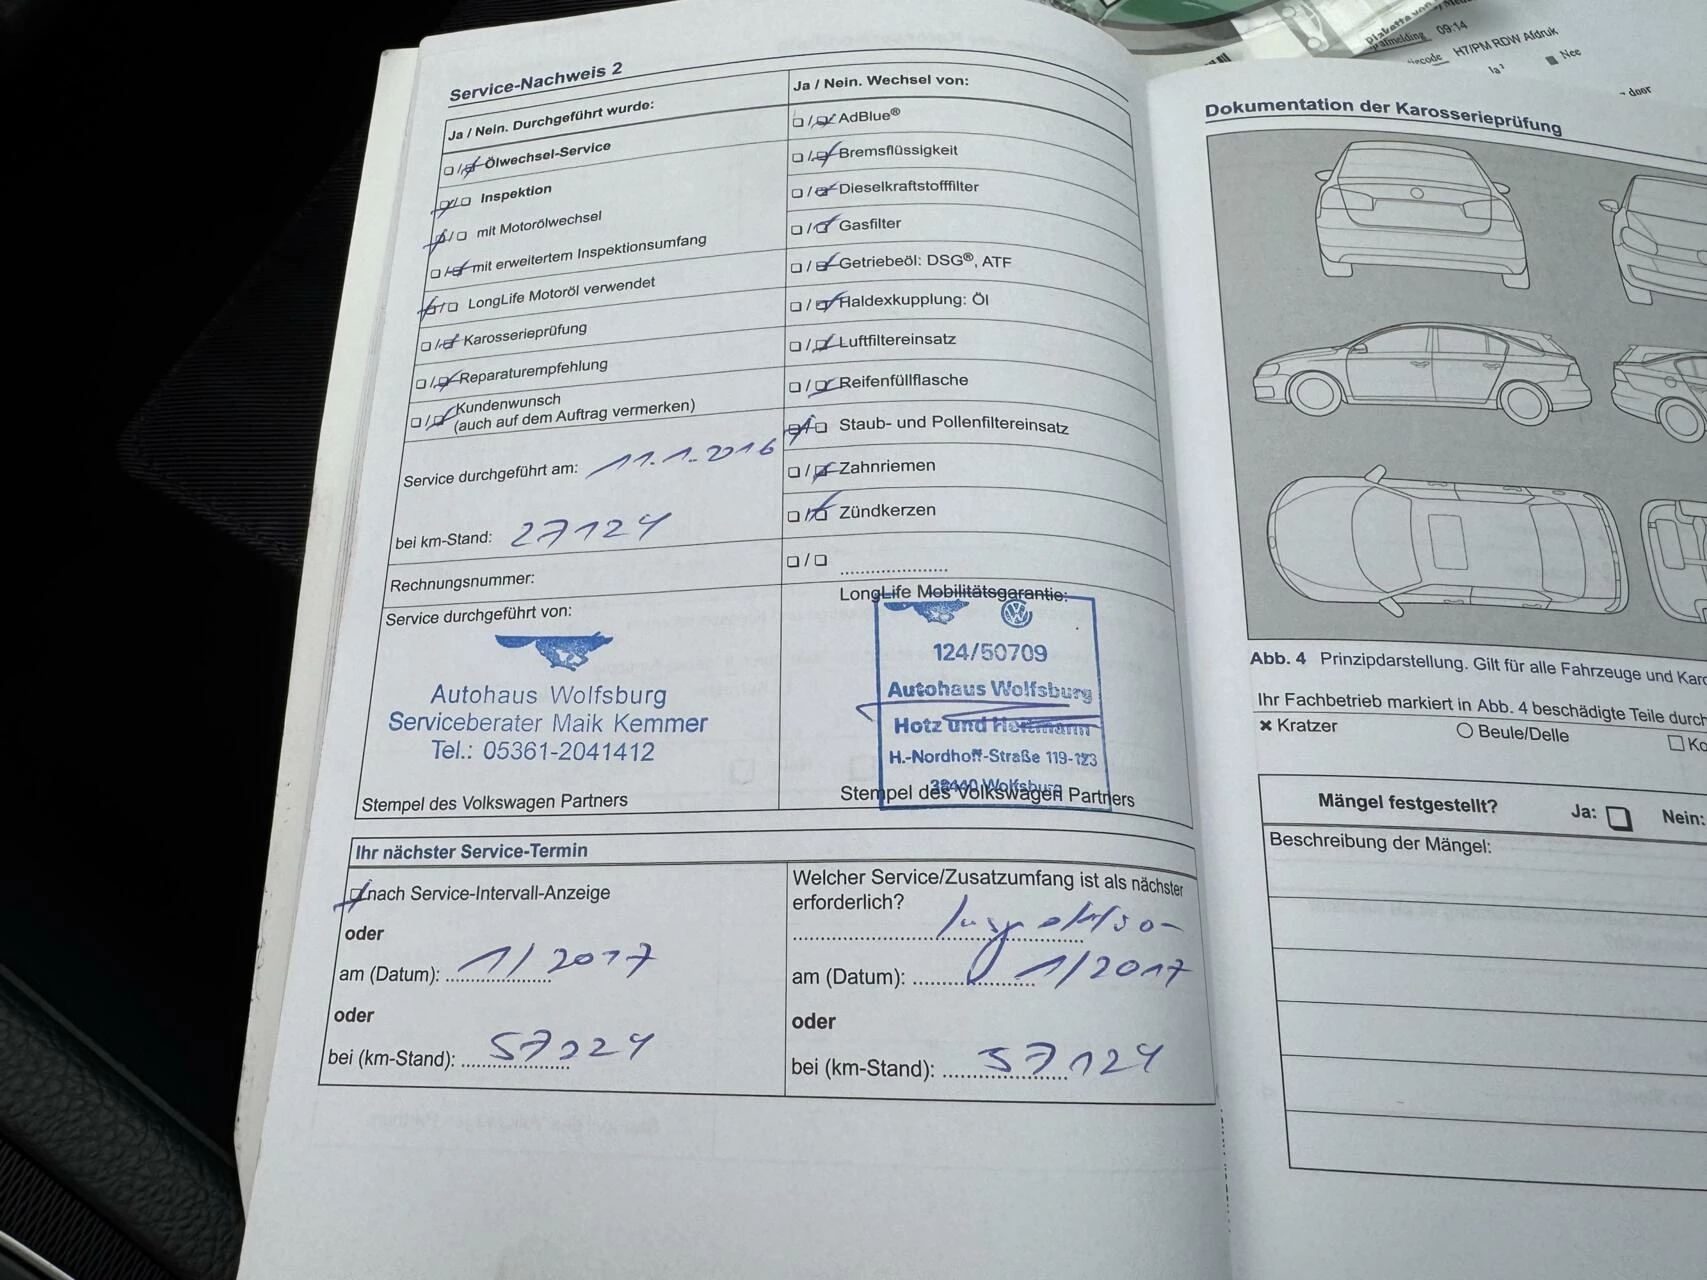 Service-Nachweis 2
Ja / Nein. Durchgeführt wurde:
Ölwechsel-Service
Inspektion
mit Motorölwechsel
mit erweitertem Inspektionsumfang
LongLife Motoröl verwendet
Karosserieprüfung
Reparaturempfehlung
Kundenwunsch
(auch auf dem Auftrag vermerken)
Service durchgeführt am: 11.1.2016
bei km-Stand: 27124
Rechnungsnummer:
Service durchgeführt von:
Autohaus Wolfsburg
Serviceberater Maik Kemmer
Tel.: 05361-2041412
Stempel des Volkswagen Partners
Ja / Nein. Wechsel von:
AdBlue®
Bremsflüssigkeit
Dieselkraftstofffilter
Gasfilter
Getriebeöl: DSG®, ATF
Haldexkupplung: Öl
Luftfiltereinsatz
Reifenfüllflasche
Staub- und Pollenfiltereinsatz
Zahnriemen
Zündkerzen
LongLife Mobilitätsgarantie:
124/50709
Autohaus Wolfsburg
Hotz und Heitmann
H.-Nordhoff-Straße 119-123
38440 Wolfsburg
Stempel des Volkswagen Partners
Ihr nächster Service-Termin
nach Service-Intervall-Anzeige
oder
am (Datum): 1/2017
oder
bei (km-Stand): 57224
Welcher Service/Zusatzumfang ist als nächster
erforderlich?
Inspektion
am (Datum): 1/2017
oder
bei (km-Stand): 57124
09:14
H7/PM RDW Afdruk
Nee
door
Dokumentation der Karosserieprüfung
Abb. 4 Prinzipdarstellung. Gilt für alle Fahrzeuge und
Ihr Fachbetrieb markiert in Abb. 4 beschädigte Teile durch
Kratzer
Beule/Delle
Mängel festgestellt? Ja: Nein:
Beschreibung der Mängel: